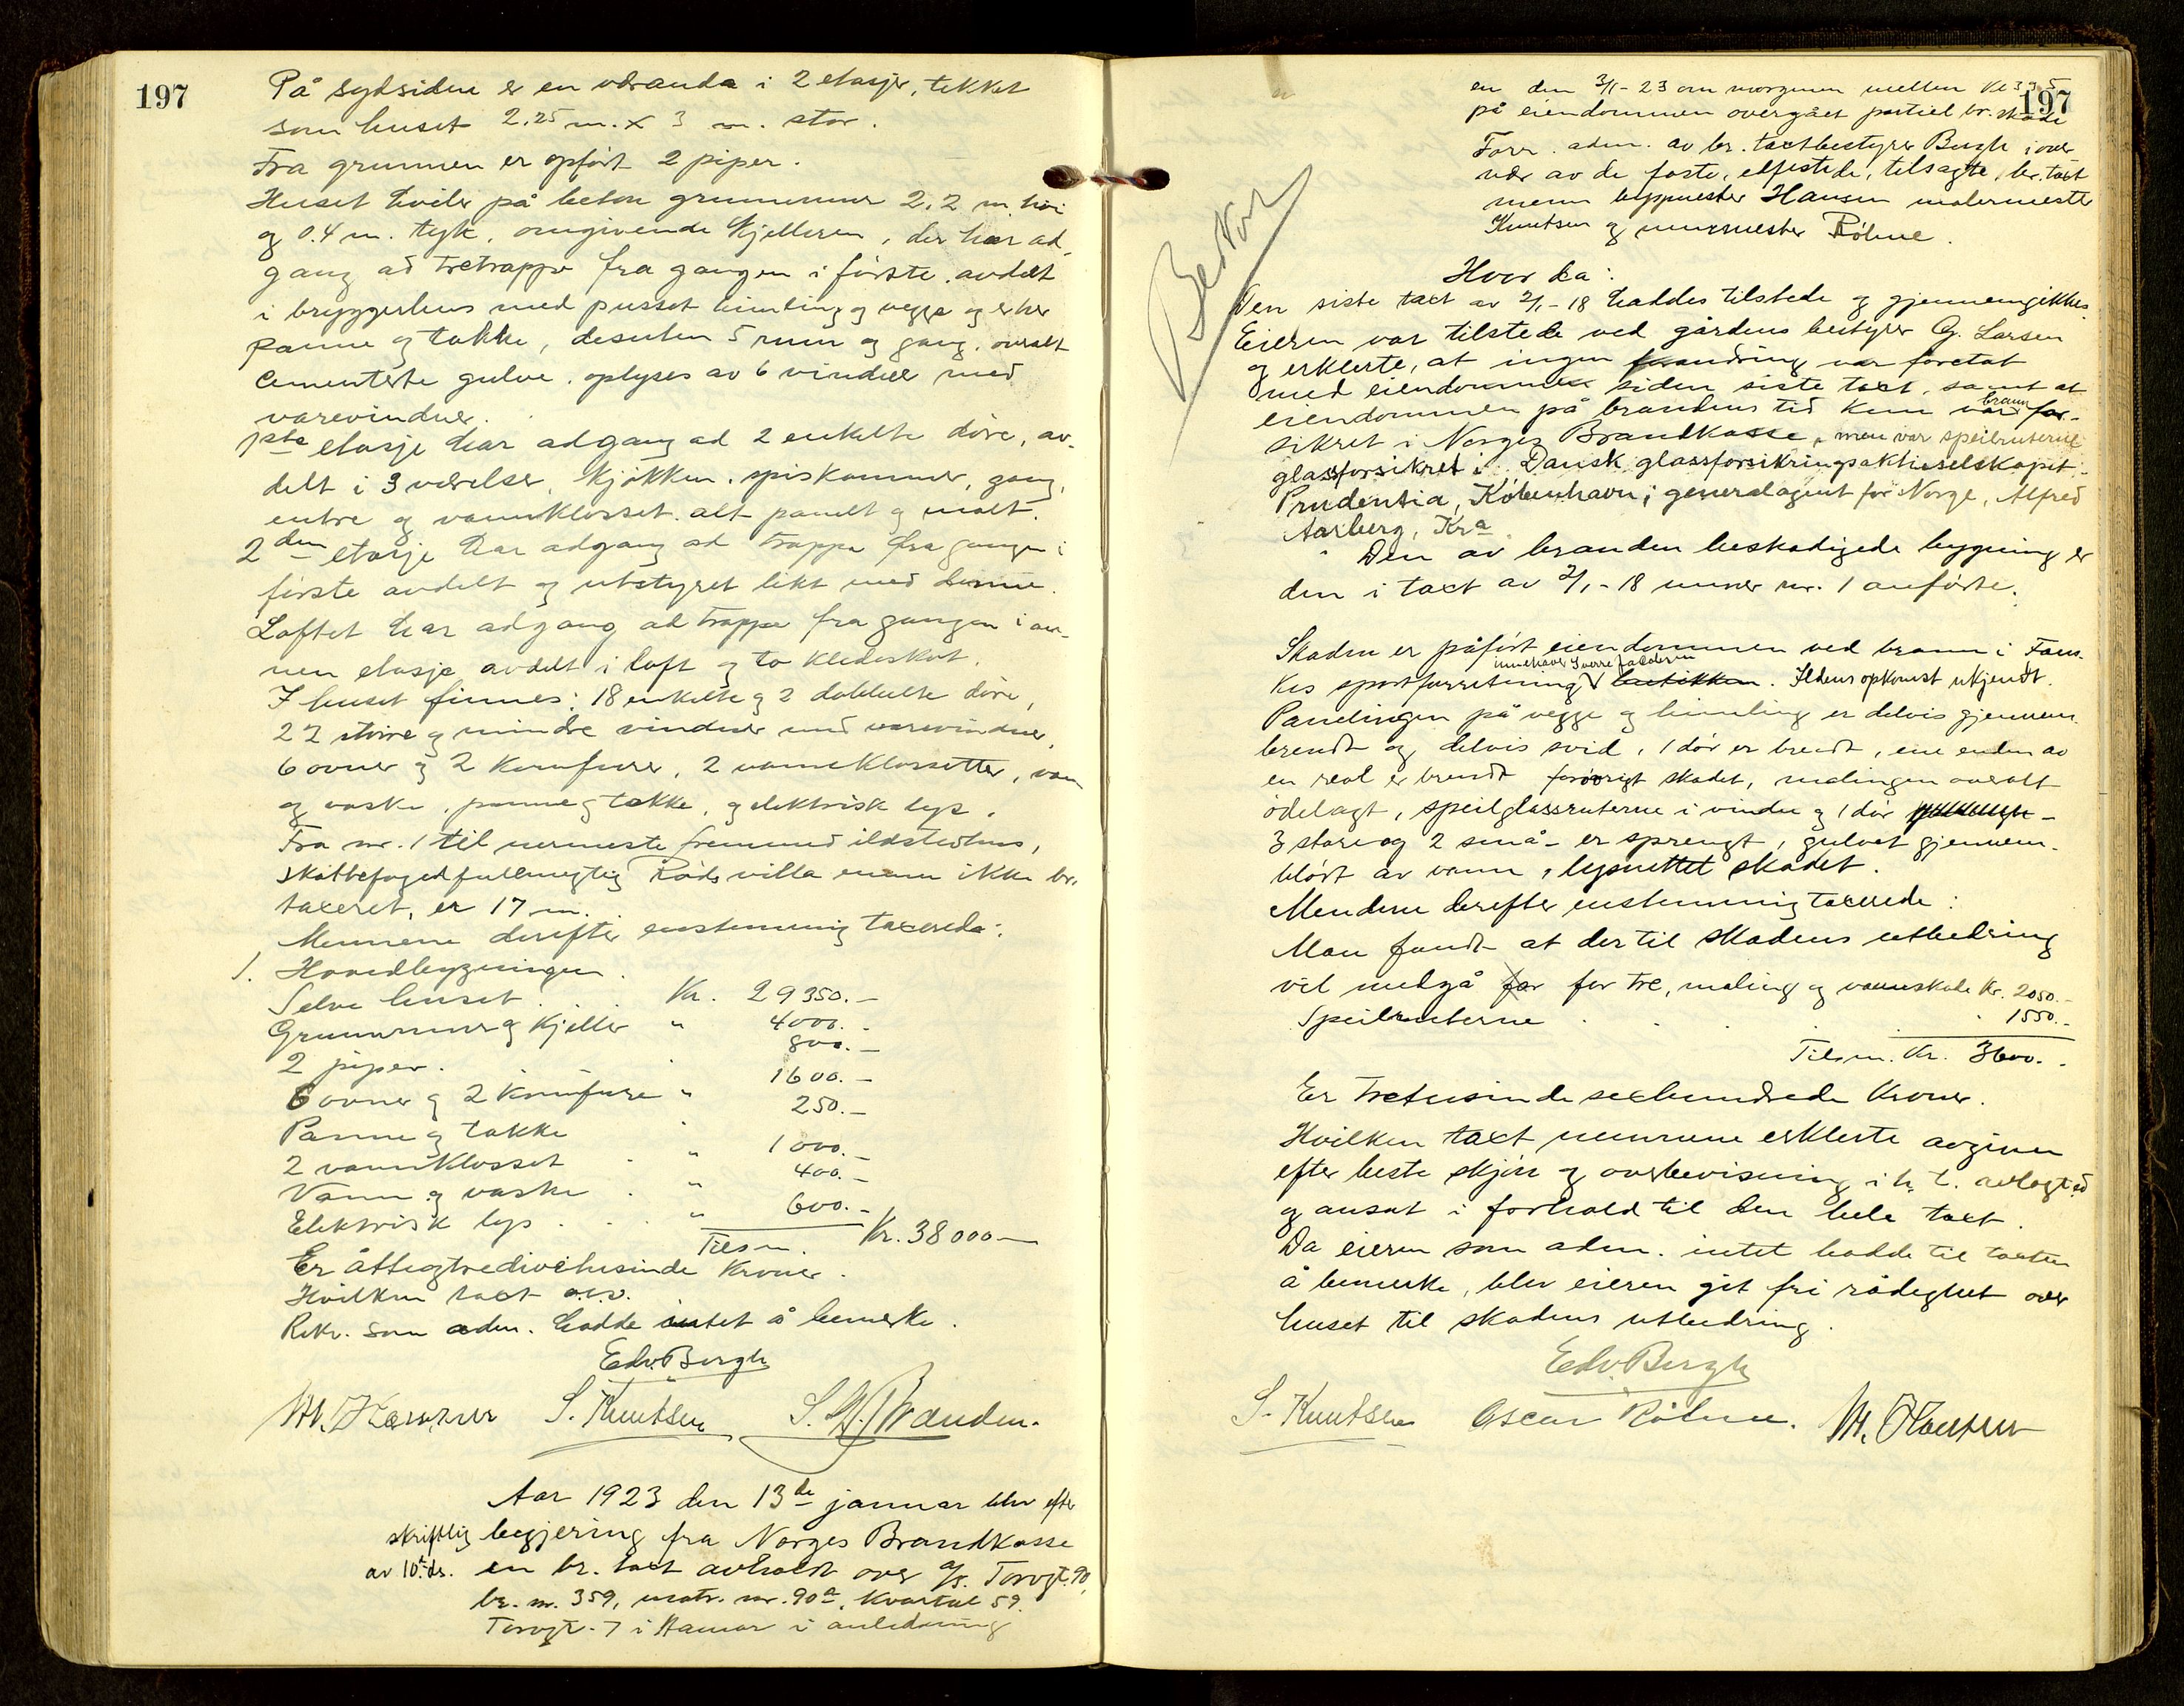 197
På sydsiden er en veranda i 2 etasjer, tekket
som huset 2.25 m. x 3 m. stor.
Fra grunnen er opført 2 piper.
Huset hviler på beton grunnmur 2,2 m. høi
og 0.4 m. tyk, omgivende kjelleren, der har ad-
gang ad tretrappe fra gangen i første, avdelt
i bryggerhus med pusset himling og vegge og er her
panne og takke, desuten 5 rum og gang, overalt
cementerte gulve, oplyses av 6 vinduer med
varevinduer.
1ste etasje har adgang ad 2 enkelte døre, av-
delt i 3 værelser, kjøkken, spiskammer, gang,
entre og vannklosset, alt panelt og malt.
2den etasje har adgang ad trappe fra gangen i
første avdelt og utstyret likt med denne.
Loftet har adgang ad trappe fra gangen i an-
nen etasje avdelt i loft og to kledeskot.
I huset finnes: 18 enkelte og 2 dobbelte døre,
22 større og mindre vinduer med varevinduer,
6 ovner og 2 komfurer, 2 vannklossetter, vann
og vaske, panne og takke, og elektrisk lys.
Fra nr. 1 til nermeste fremmed ildstedhus,
skattefogedfullmegtig Røds villa ennu ikke br.
taxeret, er 17 m.
Mennene derefter enstemmig taxerede:
1. Hovedbygningen.
Selve huset . . . Kr. 29350.-
Grunnmur og kjeller " 4000.-
2 piper. " 800.-
6 ovner og 2 komfure " 1600.-
Panne og takke " 250.-
2 vannklosset " 1000.-
Vann og vaske " 400.-
Elektrisk lys . . . " 600.-
Tilsm. Kr. 38000-
Er åtteogtredivetusinde Kroner.
Hvilken taxt o.s.v.
Rekv. som adm. hadde intet å bemerke.
Edv. Bergh
M. Hansen S. Knutsen
Aar 1923 den 13de januar blev efter
skriftlig begjering fra Norges Brandkasse
av 10de ds. en br. taxt avholdt over a/s. Torvgt. 90,
br. nr. 359, matr. nr. 90a, Kvartal 59.
Torvgt. 7 i Hamar i anledning
197
en den 3/1-23 om morgenen mellem Kl 3 og 5
på eiendommen overgået partiel br. skade
Forr. adm. av br. taxtbestyrer Bergh i over
vær av de faste, edfestede, tilsagte, br. taxt
menn byggmester Hansen malermester
Knutsen og murmester Røhne.
Hvor da:
Den siste taxt av 2/1-18 haddes tilstede og gjennemgikkes.
Eieren var tilstede ved gårdens bestyrer G. Larsen
og erklerte, at ingen forandring var foretat
med eiendommen siden siste taxt, samt at
eiendommen på brandens tid kun var brann for-
sikret i Norges Brandkasse, men var speilruterne
glassforsikret i Dansk glassforsikringsaktieselskapet
Prudentia, København; generalagent for Norge, Alfred
Aarberg, Kra
Den av branden beskadigede bygning er
den i taxt av 2/1-18 unner nr. 1 anførte.
Skaden er påført eiendommen ved brann i
sportforretning. Ildens opkomst ukjendt.
Panelingen på vegge og himling er delvis gjennem-
brendt og delvis svid, 1 dør er brendt, ene enden av
en reol er brendt forøvrigt skadet, malingen overalt
ødelagt, speilglassruterne i vindu og 1 dør -
3 store og 2 små - er sprengt, gulvet gjennem-
bløtt av vann, lysnettet skadet.
Mendene derefter enstemmig taxerede:
Man fandt at der til skadens utbedring
vil medgå for tre, maling og vannskade Kr. 2050.-
Speilruterne . . . . 1550.-
Tilsm. Kr. 3600.-
Er tretusinde sexhundrede Kroner.
Hvilken taxt mennene erklerte avgiven
efter beste skjøn og overbevisning i h. t. avlagt ed
og ansat i forhold til den hele taxt.
Da eieren som adm. intet hadde til taxten
å bemerke, blev eieren git fri rådeghet over
huset til skadens utbedring.
Edv. Bergh
S. Knutsen Oscar Røhne. M. Hansen